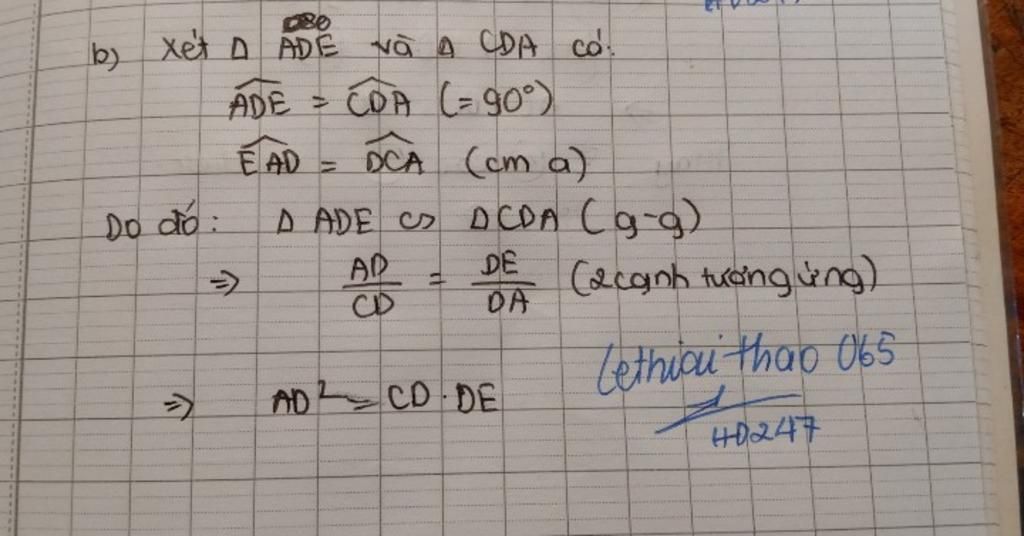 b) Xét Δ ADE và Δ CDA có:
\widehat{ADE} = \widehat{CDA} (= 90°)
\widehat{EAD} = \widehat{DCA} (cm a)
Do đó: Δ ADE ∽ Δ CDA (g-g)
⇒ AD/CD = DE/DA (2 cạnh tương ứng)
⇒ AD² = CD . DE
Lethiai thao 065
HD247